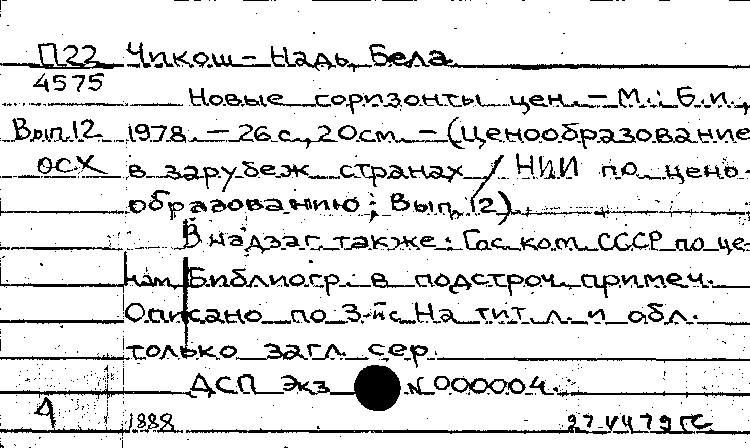 П22 Чикош-Надь, Бела.
4575
Новые горизонты цен. - М.: Б.и.,
Вып.12 1978. - 26с., 20см. - (Ценообразование
ОСХ в зарубеж. странах / НИИ по цено-
образованию; Вып. 12).
В надзаг. также: Гос. ком. СССР по це-
нам. Библиогр. в подстроч. примеч.
Описано по 3-й с. На тит. л. и обл.
только загл. сер.
ДСП Экз. N 000004.
1888